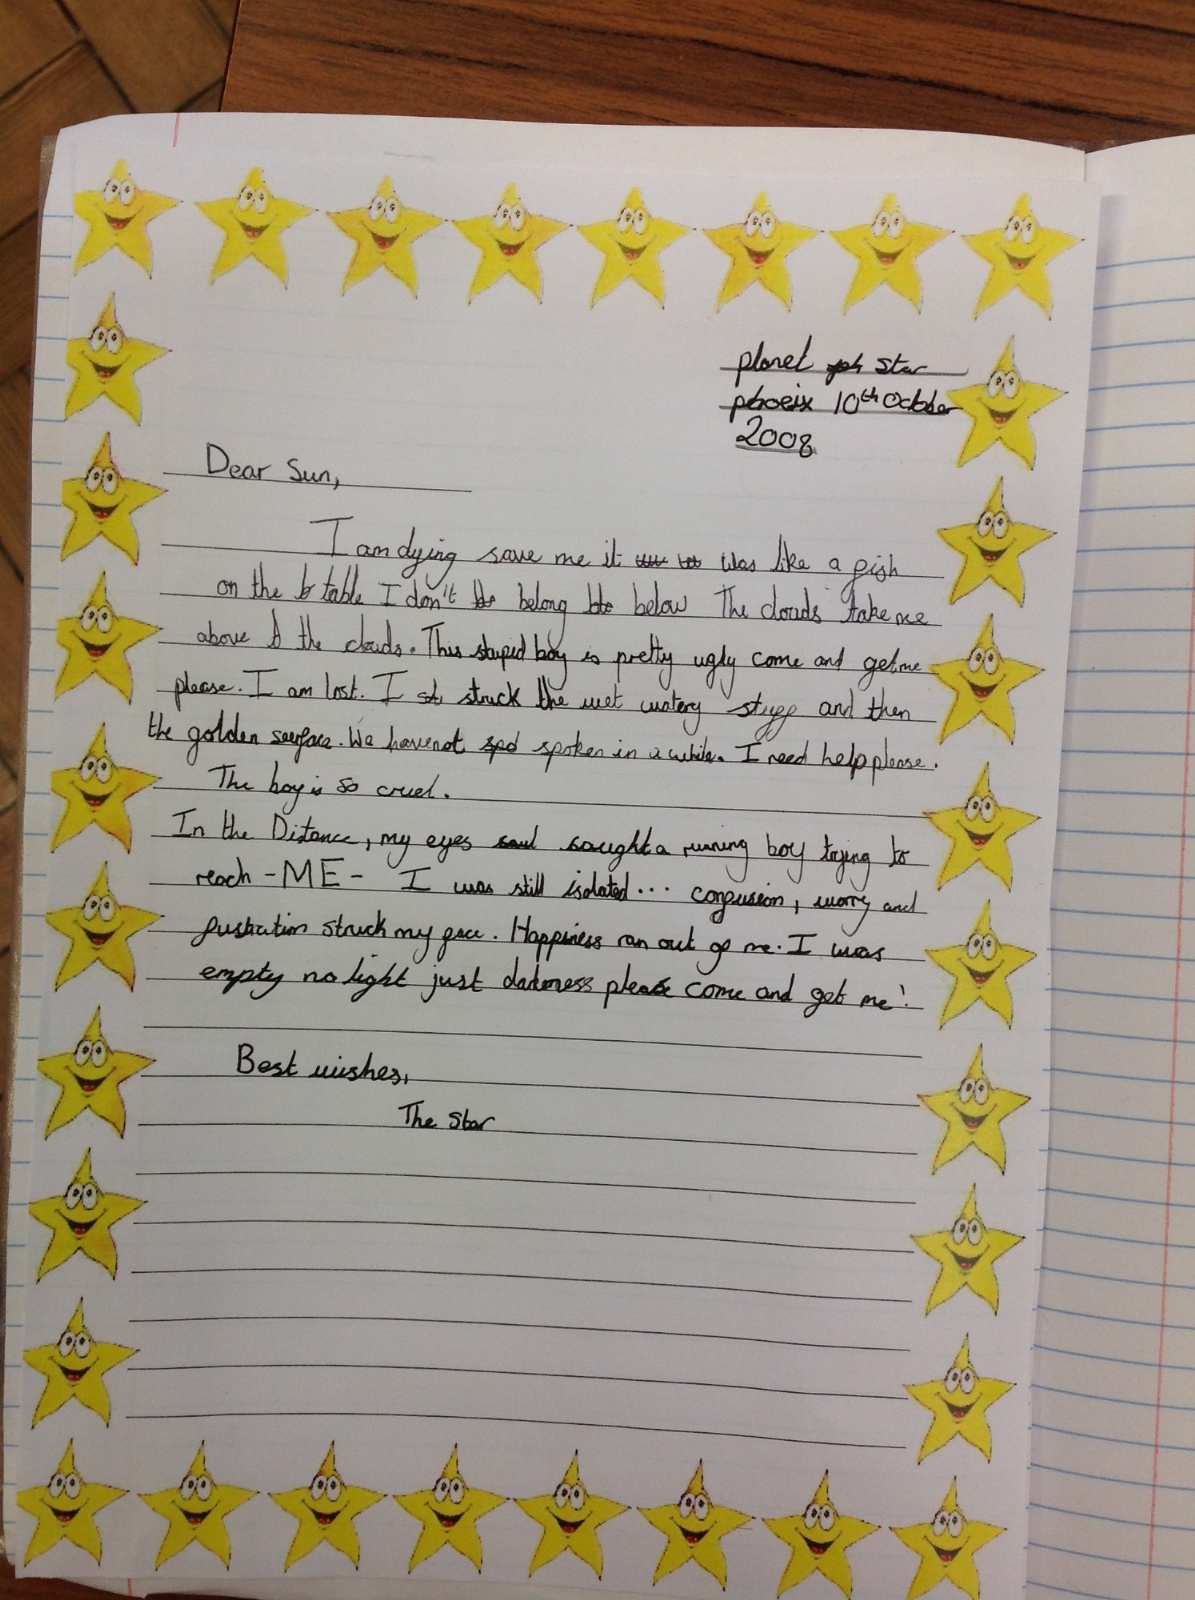 planet star
phoeix 10th October
2008
Dear Sun,
I am dying save me it was like a fish
on the table I don't belong below The clouds take me
above the clouds. This stupid boy is pretty ugly come and get me
please. I am lost. I struck the wet watery stuff and then
the golden surface. We have not spoken in a while. I need help please.
The boy is so cruel.
In the Distance, my eyes sought a running boy trying to
reach -ME- I was still isolated... confusion, worry and
fustration struck my face. Happiness ran out of me. I was
empty no light just darkness please come and get me!
Best wishes,
The Star